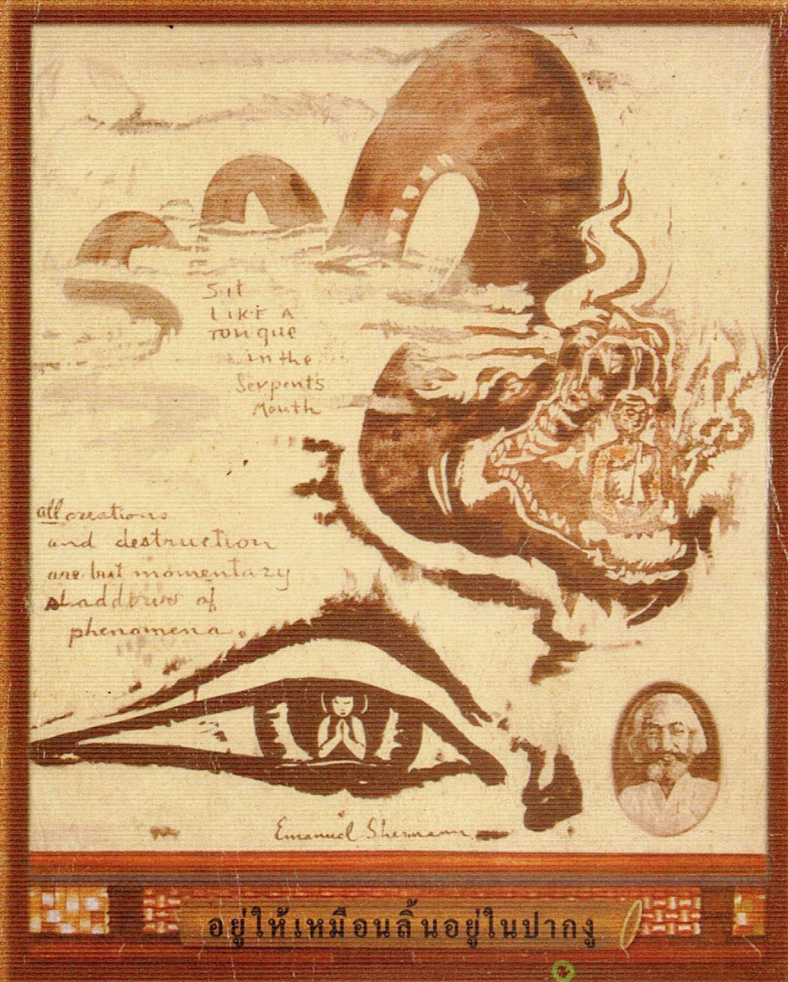 Sit
LIKE A
Tongue
in the
Serpent's
Mouth
all creations
and destruction
are but momentary
shaddows of
phenomena.
Emanuel Shermann
อยู่ให้เหมือนลิ้นอยู่ในปากงู